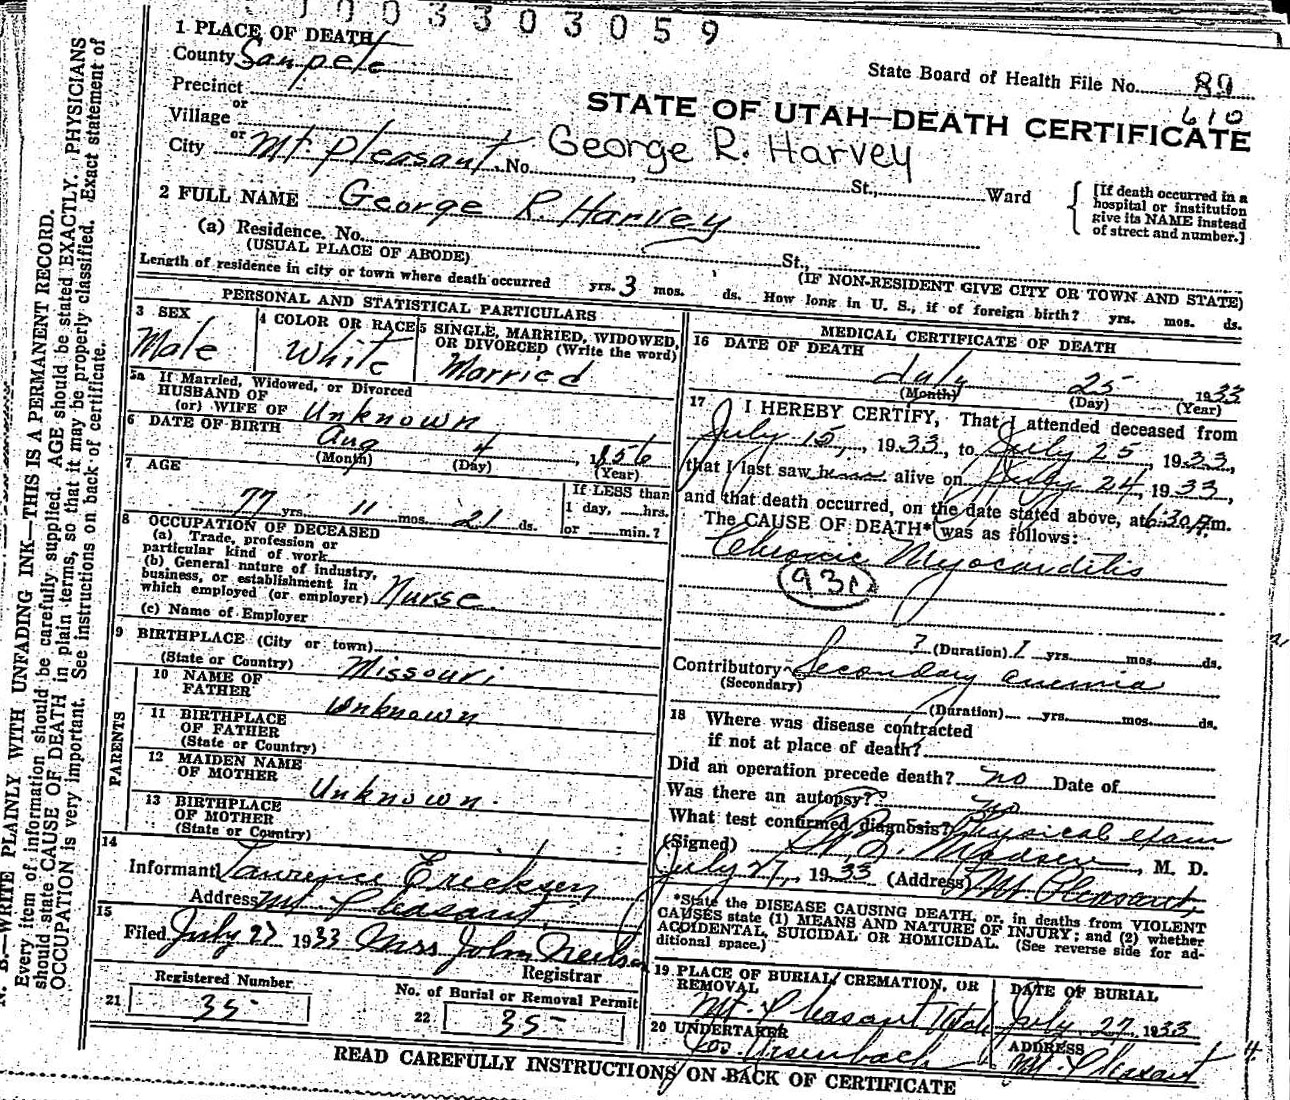 0 0 3 3 0 3 0 5 9
1 PLACE OF DEATH
County Sanpete
State Board of Health File No. 89
610
Precinct
or
Village
or
STATE OF UTAH—DEATH CERTIFICATE
City Mt Pleasant No. St., Ward
George R. Harvey
[If death occurred in a hospital or institution give its NAME instead of street and number.]
2 FULL NAME George R. Harvey
(a) Residence. No. St.,
(USUAL PLACE OF ABODE) (IF NON-RESIDENT GIVE CITY OR TOWN AND STATE)
Length of residence in city or town where death occurred yrs. 3 mos. ds. How long in U. S., if of foreign birth? yrs. mos. ds.
PERSONAL AND STATISTICAL PARTICULARS
3 SEX
Male
4 COLOR OR RACE
White
5 SINGLE, MARRIED, WIDOWED, OR DIVORCED (Write the word)
Married
5a If Married, Widowed, or Divorced
HUSBAND OF
(or) WIFE OF Unknown
6 DATE OF BIRTH
Aug 4 1856
(Month) (Day) (Year)
7 AGE
77 yrs. 11 mos. 21 ds.
If LESS than
1 day, hrs.
or min.?
8 OCCUPATION OF DECEASED
(a) Trade, profession or
particular kind of work
(b) General nature of industry,
business, or establishment in
which employed (or employer) Nurse
(c) Name of Employer
9 BIRTHPLACE (City or town)
(State or Country) Missouri
PARENTS
10 NAME OF
FATHER Unknown
11 BIRTHPLACE
OF FATHER
(State or Country)
12 MAIDEN NAME
OF MOTHER Unknown.
13 BIRTHPLACE
OF MOTHER
(State or Country)
14
Informant Lawrence Ericksen
Address Mt Pleasant
15
Filed July 27 1933 John Neilson
Registrar
Registered Number
21 35
No. of Burial or Removal Permit
22 35
MEDICAL CERTIFICATE OF DEATH
16 DATE OF DEATH
July 25 1933
(Month) (Day) (Year)
17 I HEREBY CERTIFY, That I attended deceased from
July 15, 1933, to July 25, 1933,
that I last saw him alive on July 24, 1933,
and that death occurred, on the date stated above, at 6:30 A m.
The CAUSE OF DEATH* was as follows:
Chronic Myocarditis
93c
? (Duration) 1 yrs. mos. ds.
Contributory Secondary anemia
(Secondary)
(Duration) yrs. mos. ds.
18 Where was disease contracted
if not at place of death?
Did an operation precede death? no Date of
Was there an autopsy? no
What test confirmed diagnosis? Physical exam
(Signed) Madsen, M. D.
July 27, 1933 (Address) Mt Pleasant
*State the DISEASE CAUSING DEATH, or, in deaths from VIOLENT
CAUSES state (1) MEANS AND NATURE OF INJURY; and (2) whether
ACCIDENTAL, SUICIDAL OR HOMICIDAL. (See reverse side for ad-
ditional space.)
19 PLACE OF BURIAL, CREMATION, OR
REMOVAL
Mt. Pleasant Utah
DATE OF BURIAL
July 27, 1933
20 UNDERTAKER
ADDRESS
Mt. Pleasant
READ CAREFULLY INSTRUCTIONS ON BACK OF CERTIFICATE
N. B.—WRITE PLAINLY WITH UNFADING INK—THIS IS A PERMANENT RECORD.
Every item of information should be carefully supplied. AGE should be stated EXACTLY. PHYSICIANS
should state CAUSE OF DEATH in plain terms, so that it may be properly classified. Exact statement of
OCCUPATION is very important. See instructions on back of certificate.